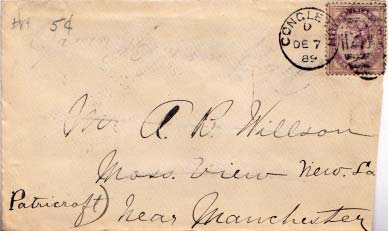 #89 5¢
CONGLE
D
DE 7
89
Mr A. B. Willson
Moss View New. La
Patricroft) Near Manchester